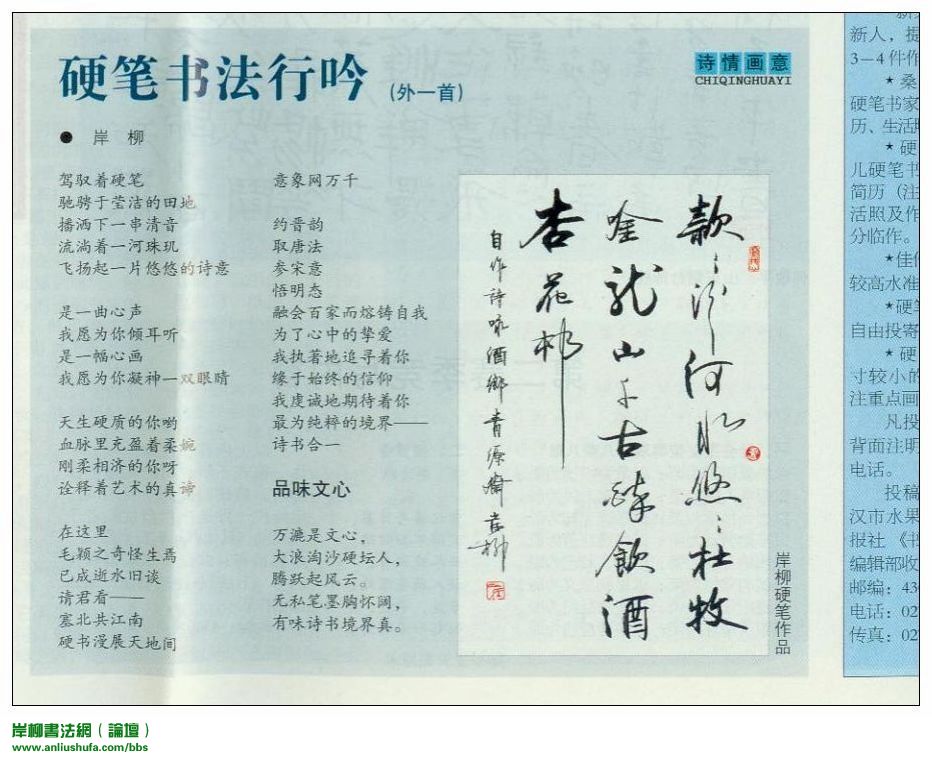 硬笔书法行吟 (外一首)
● 岸 柳
诗情画意
CHIQINGHUAYI
驾驭着硬笔
驰骋于莹洁的田地
播洒下一串清音
流淌着一河珠玑
飞扬起一片悠悠的诗意
是一曲心声
我愿为你倾耳听
是一幅心画
我愿为你凝神一双眼睛
天生硬质的你哟
血脉里充盈着柔婉
刚柔相济的你呀
诠释着艺术的真谛
在这里
毛颖之奇怪生焉
已成逝水旧谈
请君看——
塞北共江南
硬书漫展天地间
意象网万千
约晋韵
取唐法
参宋意
悟明态
融会百家而熔铸自我
为了心中的挚爱
我执著地追寻着你
缘于始终的信仰
我虔诚地期待着你
最为纯粹的境界——
诗书合一
品味文心
万漉是文心，
大浪淘沙硬坛人，
腾跃起风云。
无私笔墨胸怀阔，
有味诗书境界真。
汾河水悠:杜牧
山 古 飲酒
杏花村
自作詩咏酒鄉青源齋岸柳
岸柳硬笔作品
新人，提
3－4件作
★桑
硬笔书家
历、生活照
★硬
儿硬笔书
简历（注
活照及作
分临作。
★佳作
较高水准
★硬笔
自由投寄
★硬
寸较小的
注重点画
凡投
背面注明
电话。
投稿
汉市水果
报社《书
编辑部收
邮编：43
电话：02
传真：02
岸柳書法網（論壇）
www.anliushufa.com/bbs